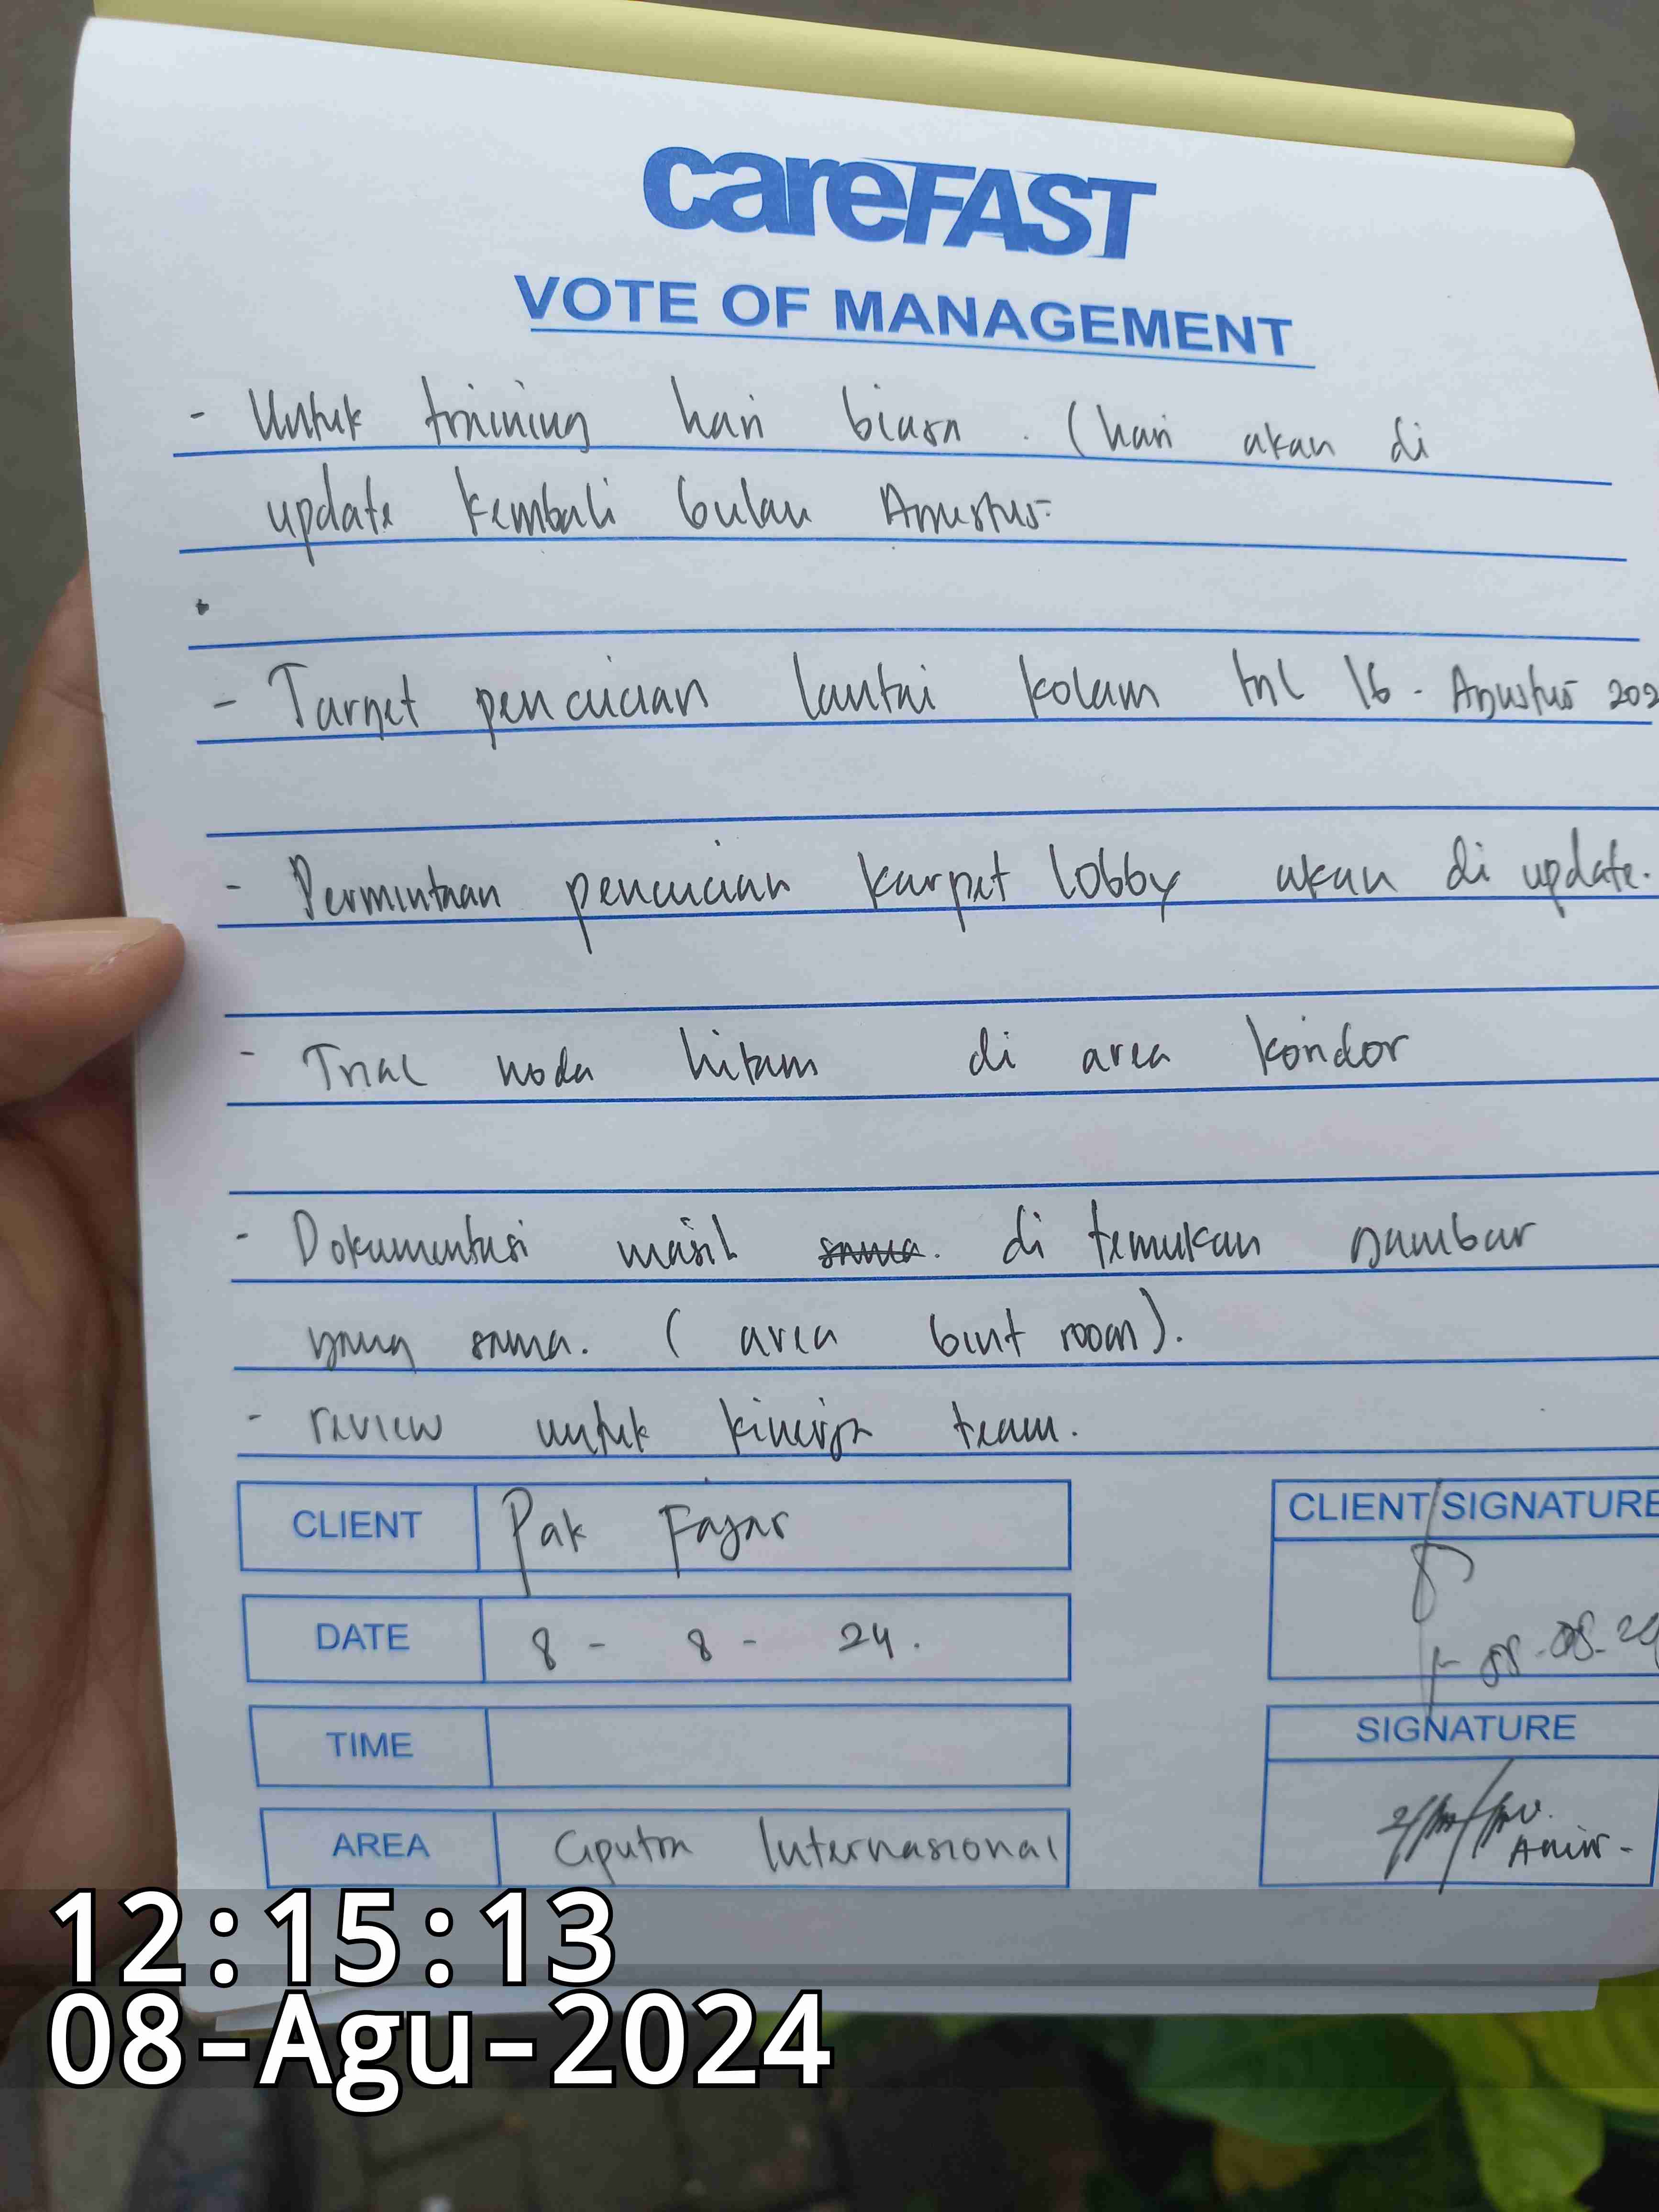 careFAST
VOTE OF MANAGEMENT
- Untuk training hari biasa . (hari akan di
update kembali bulan Agustus-
- Target pencucian lantai kolam tgl 16 - Agustus 202
- Permintaan pencucian karpet lobby akan di update.
- Trial noda hitam di area koridor
- Dokumentasi masih sama. di temukan gambar
yang sama. ( area room).
- review untuk kinerja team.
CLIENT Pak Fajar
CLIENT SIGNATURE
08-08-24
DATE 8 - 8 - 24.
TIME
SIGNATURE
AREA Ciputra Internasional
12:15:13
08-Agu-2024